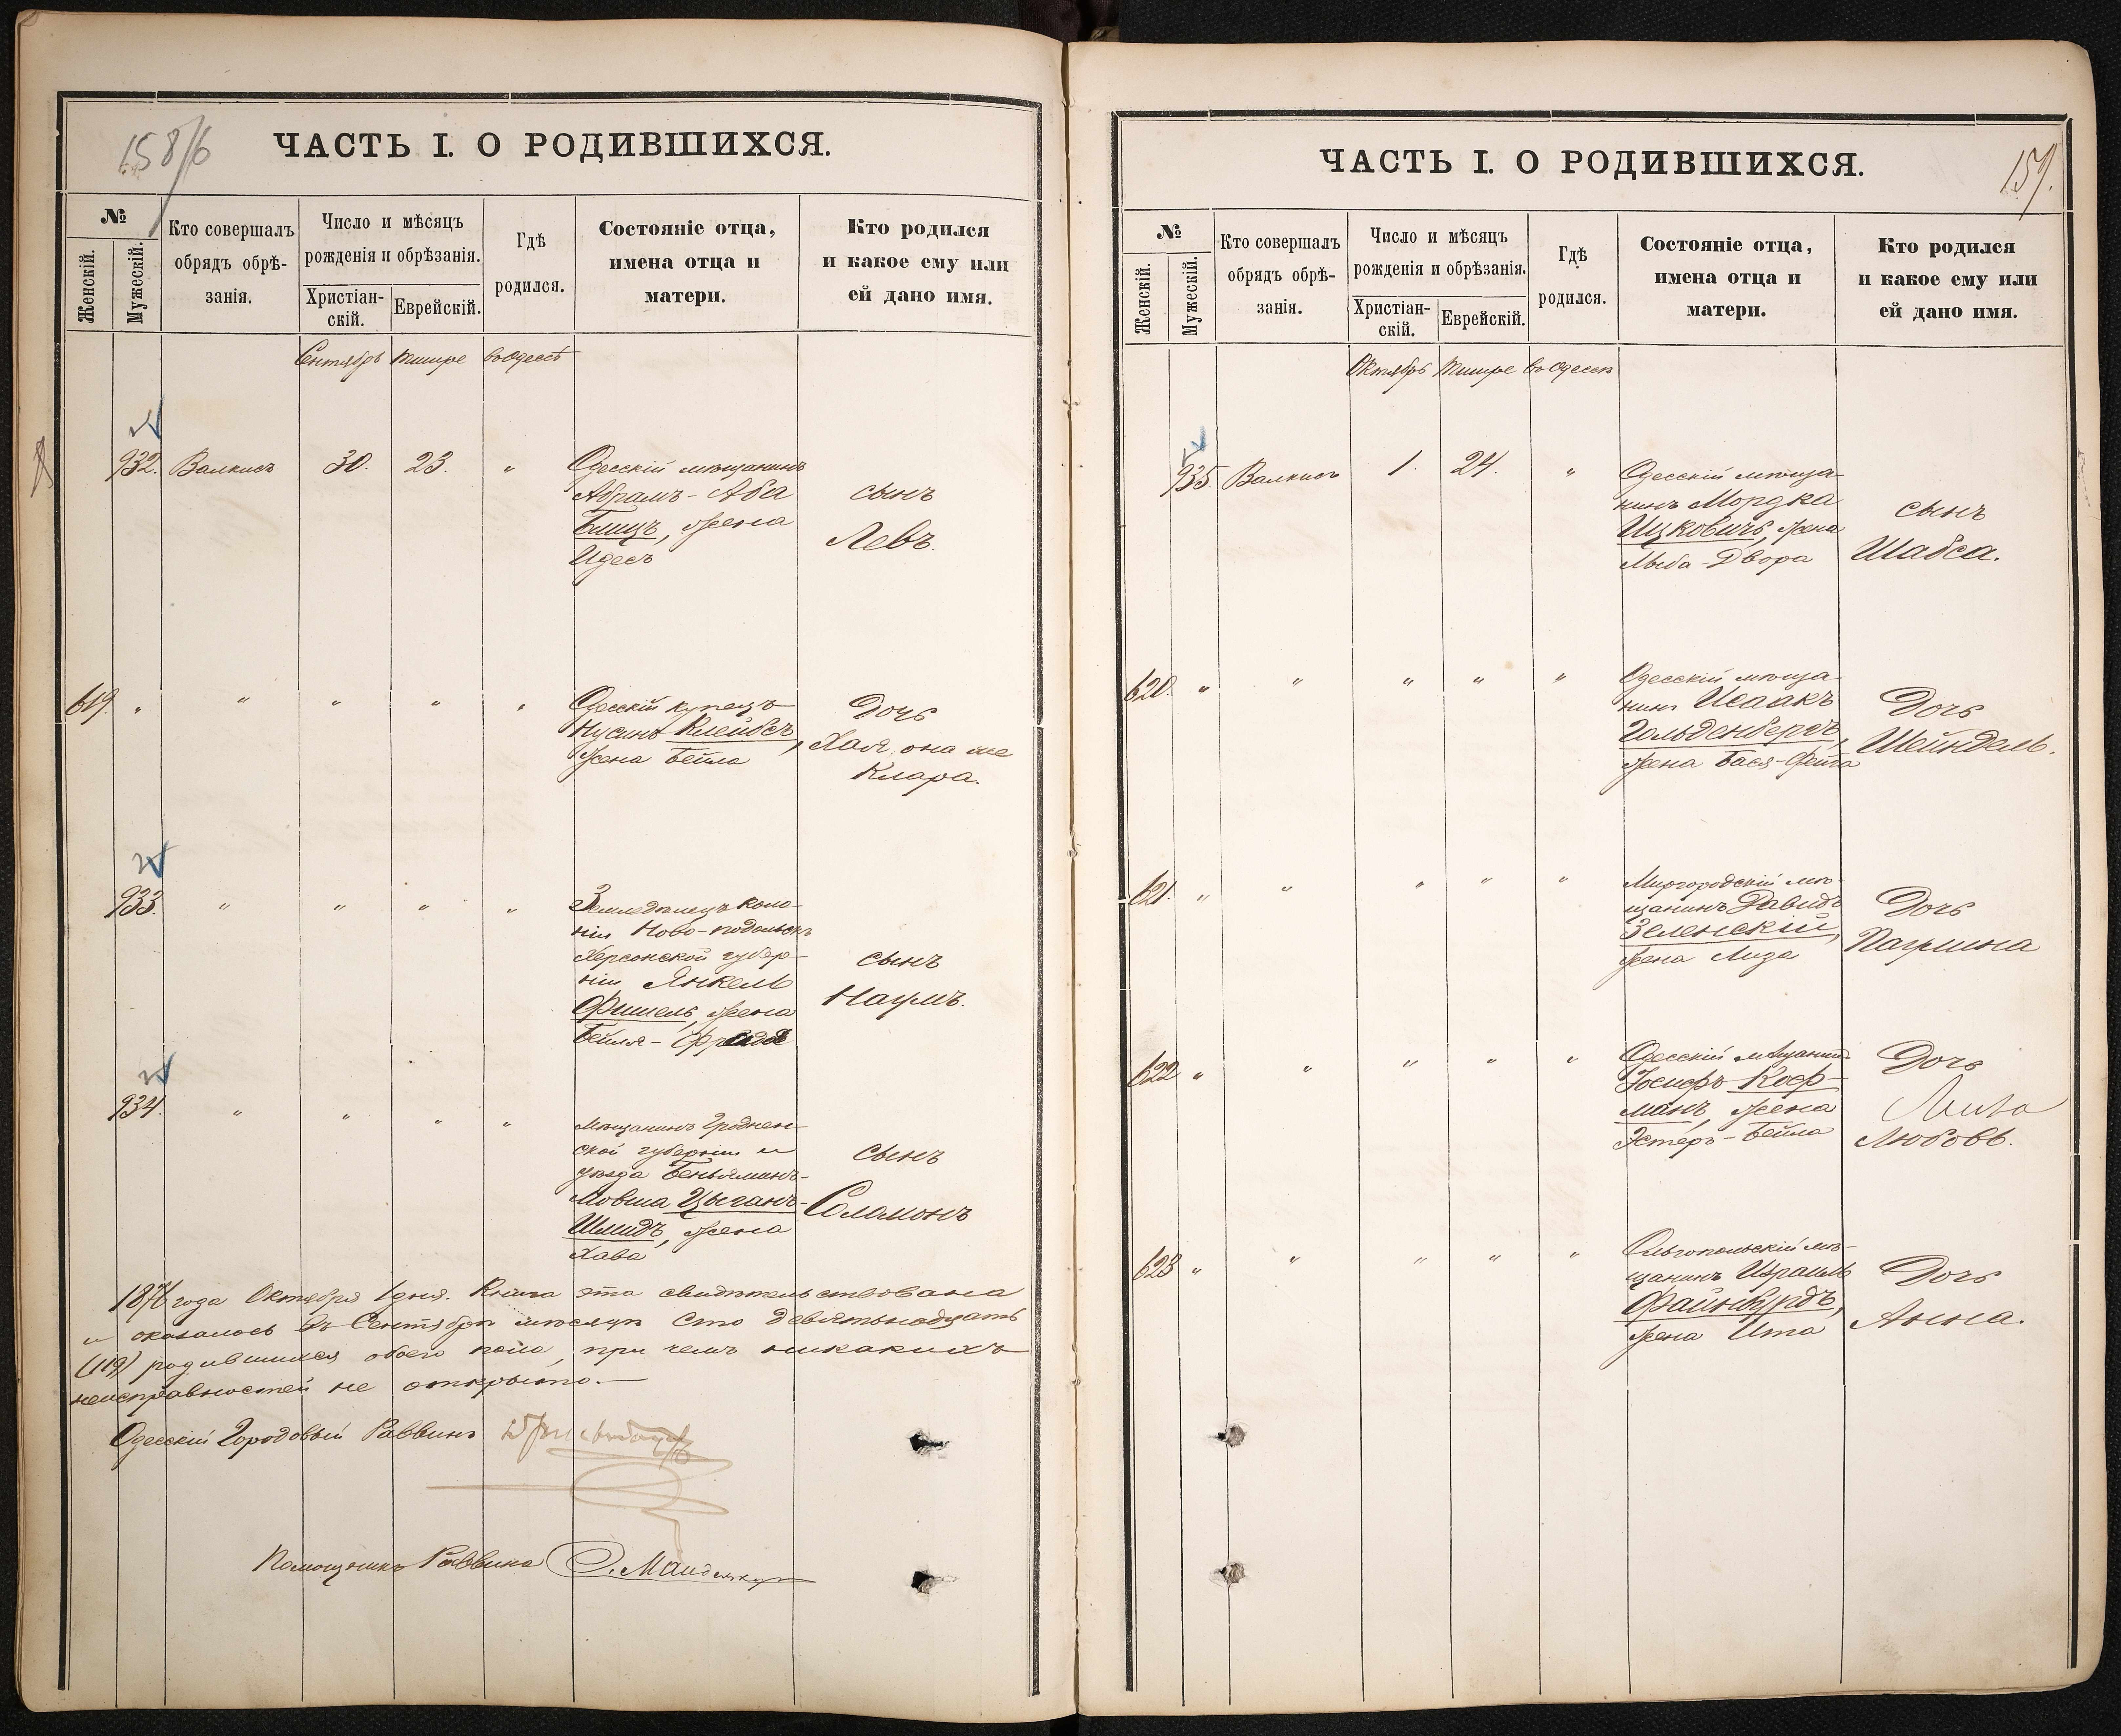 158/6
ЧАСТЬ I. О РОДИВШИХСЯ.
№
Женскій.
Мужескій.
Кто совершалъ
обрядъ обрѣ-
занія.
Число и мѣсяцъ
рожденія и обрѣзанія.
Христіан-
скій.
Еврейскій.
Гдѣ
родился.
Состояніе отца,
имена отца и
матери.
Кто родился
и какое ему или
ей дано имя.
Сентябрь Тишре въ Одессѣ
932. Валкисъ 30. 23. "
Одесскій мѣщанинъ
Абрамъ-Аба
Блицъ, жена
Идесъ
сынъ
Левъ.
619. " " " " "
Одесскій купецъ
Нусинъ Клейбсъ,
жена Бейла
Дочь
Хая, она же
Клара.
933. " " " "
Земледѣлецъ коло-
ніи Ново-подольскъ
Херсонской губер-
ніи Янкель
Фишель, жена
Бейля-
сынъ
Наумъ.
934. " " " "
Мѣщанинъ Гроднен-
ской губерніи и
уѣзда Беньяминъ-
Мовша Цыганъ-
Шмидъ, жена
Хава
сынъ
Соломонъ
1876 года Октября 1 дня. Книга эта свидѣтельствована
и оказалось въ Сентябрѣ мѣсяцѣ сто девятьнадцать
(119) родившихся обоего пола, при чемъ никакихъ
неисправностей не открыто.—
Одесскій Городовый Раввинъ
Помощникъ Раввина
159.
ЧАСТЬ I. О РОДИВШИХСЯ.
№
Женскій.
Мужескій.
Кто совершалъ
обрядъ обрѣ-
занія.
Число и мѣсяцъ
рожденія и обрѣзанія.
Христіан-
скій.
Еврейскій.
Гдѣ
родился.
Состояніе отца,
имена отца и
матери.
Кто родился
и какое ему или
ей дано имя.
Октябрь Тишре въ Одессѣ
935. Валкисъ 1. 24. "
Одесскій мѣща-
нинъ Мордка
Ицковичъ, жена
Двора
сынъ
Шабса.
620. " " " " "
Одесскій мѣща-
нинъ Исаакъ
Гольденбергъ,
жена Бася-Фейга
Дочь
Шейндель.
621. " " " " "
Миргородскій мѣ-
щанинъ Давидъ
Зеленскій,
жена Лиза
Дочь
622 " " " " "
Одесскій мѣщанинъ
Іосифъ Коф-
манъ, жена
Эстеръ-Бейла
Дочь
Любовь.
623 " " " " "
Ольгопольскій мѣ-
щанинъ Израиль
Файнбурдъ,
жена Ита
Дочь
Анна.